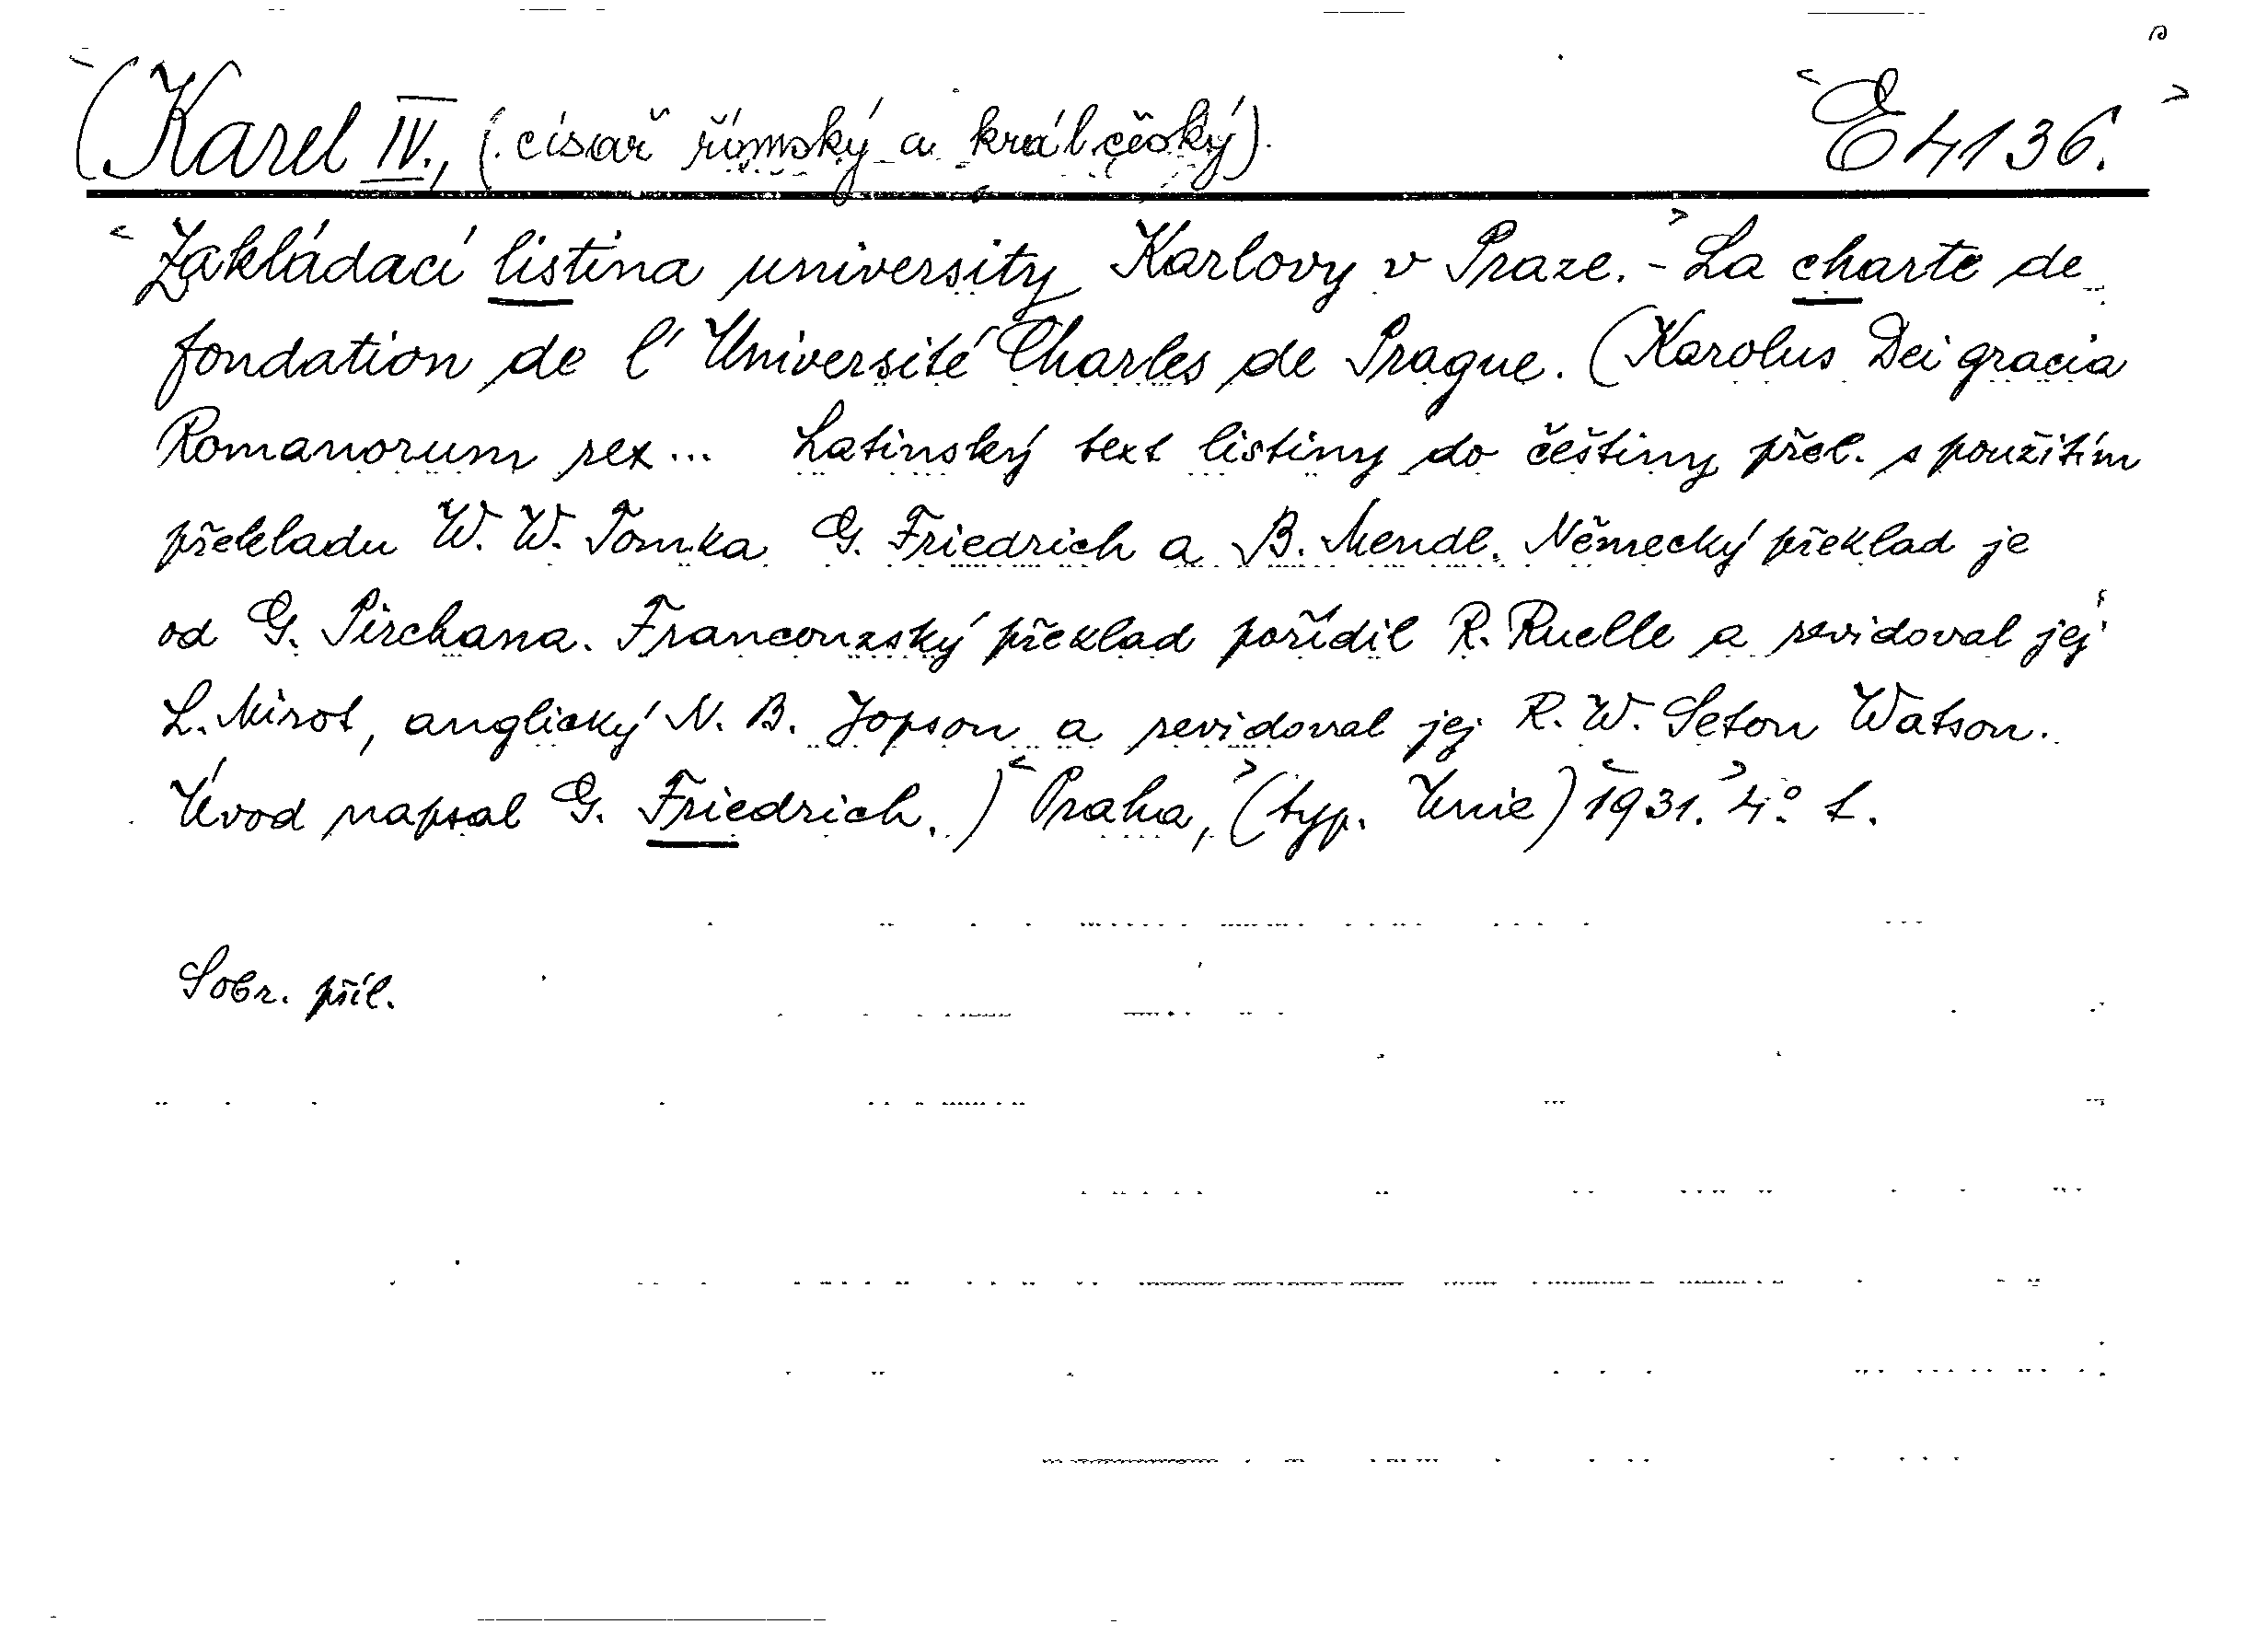 (Karel IV., (císař římský a král český). E 4136.
Zakládací listina university Karlovy v Praze. - La charte de
fondation de l' Université Charles de Prague. (Karolus Dei gracia
Romanorum rex... Latinský text listiny do češtiny přel. s použitím
překladu W. W. Tomka G. Friedrich a B. Mendl. Německý překlad je
od G. Pirchana. Francouzský překlad pořídil R. Ruelle a revidoval jej
L. Mirot, anglický N. B. Jopson a revidoval jej R. W. Seton Watson.
Úvod napsal G. Friedrich.) Praha, (typ. Unie) 1931. 4° t.
Sobr. příl.